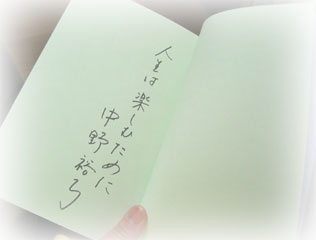 人生は楽しむために
中野裕弓